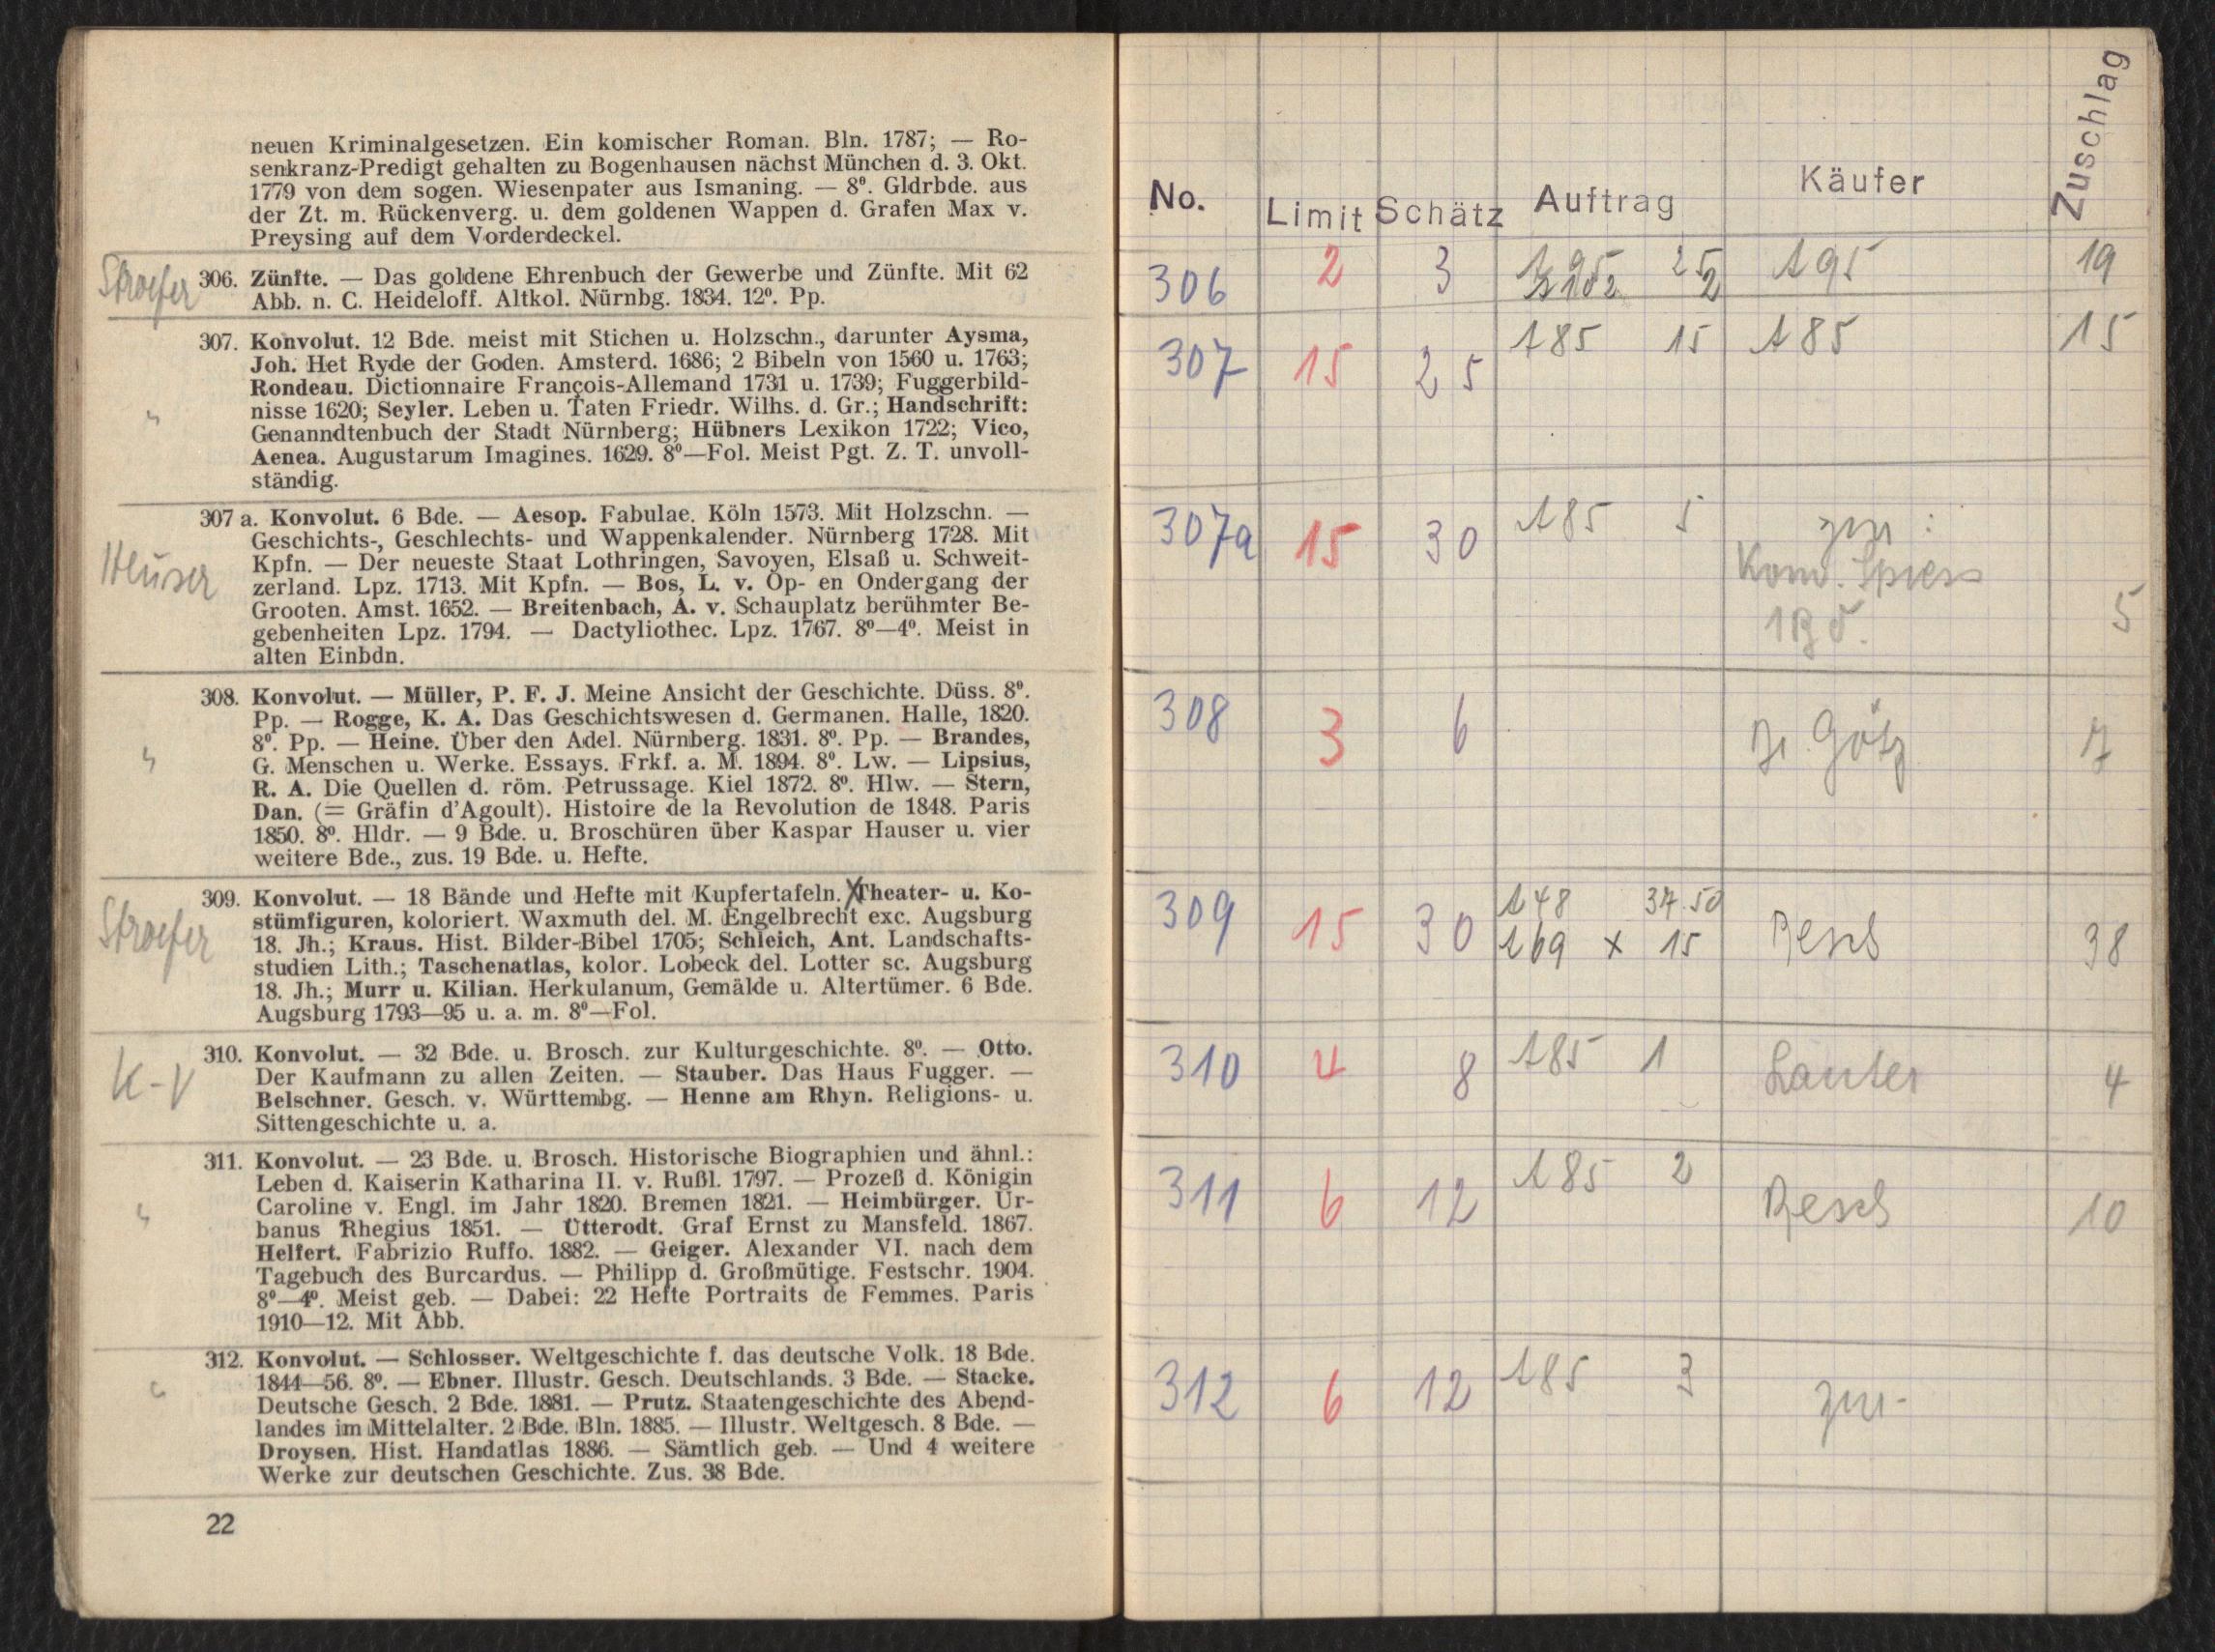 neuen Kriminalgesetzen. Ein komischer Roman. Bln. 1787; — Ro-
senkranz-Predigt gehalten zu Bogenhausen nächst München d. 3. Okt.
1779 von dem sogen. Wiesenpater aus Ismaning. — 8⁰. Gldrbde. aus
der Zt. m. Rückenverg. u. dem goldenen Wappen d. Grafen Max v.
Preysing auf dem Vorderdeckel.
Stroefer 306. Zünfte. — Das goldene Ehrenbuch der Gewerbe und Zünfte. Mit 62
Abb. n. C. Heideloff. Altkol. Nürnbg. 1834. 12⁰. Pp.
307. Konvolut. 12 Bde. meist mit Stichen u. Holzschn., darunter Aysma,
Joh. Het Ryde der Goden. Amsterd. 1686; 2 Bibeln von 1560 u. 1763;
Rondeau. Dictionnaire François-Allemand 1731 u. 1739; Fuggerbild-
" nisse 1620; Seyler. Leben u. Taten Friedr. Wilhs. d. Gr.; Handschrift:
Genanndtenbuch der Stadt Nürnberg; Hübners Lexikon 1722; Vico,
Aenea. Augustarum Imagines. 1629. 8⁰—Fol. Meist Pgt. Z. T. unvoll-
ständig.
307 a. Konvolut. 6 Bde. — Aesop. Fabulae. Köln 1573. Mit Holzschn. —
Geschichts-, Geschlechts- und Wappenkalender. Nürnberg 1728. Mit
Kpfn. — Der neueste Staat Lothringen, Savoyen, Elsaß u. Schweit-
zerland. Lpz. 1713. Mit Kpfn. — Bos, L. v. Op- en Ondergang der
Grooten. Amst. 1652. — Breitenbach, A. v. Schauplatz berühmter Be-
gebenheiten Lpz. 1794. — Dactyliothec. Lpz. 1767. 8⁰—4⁰. Meist in
alten Einbdn.
308. Konvolut. — Müller, P. F. J. Meine Ansicht der Geschichte. Düss. 8⁰.
Pp. — Rogge, K. A. Das Geschichtswesen d. Germanen. Halle, 1820.
8⁰. Pp. — Heine. Über den Adel. Nürnberg. 1831. 8⁰. Pp. — Brandes,
" G. Menschen u. Werke. Essays. Frkf. a. M. 1894. 8⁰. Lw. — Lipsius,
R. A. Die Quellen d. röm. Petrussage. Kiel 1872. 8⁰. Hlw. — Stern,
Dan. (= Gräfin d'Agoult). Histoire de la Revolution de 1848. Paris
1850. 8⁰. Hldr. — 9 Bde. u. Broschüren über Kaspar Hauser u. vier
weitere Bde., zus. 19 Bde. u. Hefte.
309. Konvolut. — 18 Bände und Hefte mit Kupfertafeln. X Theater- u. Ko-
Stroefer stümfiguren, koloriert. Waxmuth del. M. Engelbrecht exc. Augsburg
18. Jh.; Kraus. Hist. Bilder-Bibel 1705; Schleich, Ant. Landschafts-
studien Lith.; Taschenatlas, kolor. Lobeck del. Lotter sc. Augsburg
18. Jh.; Murr u. Kilian. Herkulanum, Gemälde u. Altertümer. 6 Bde.
Augsburg 1793—95 u. a. m. 8⁰—Fol.
310. Konvolut. — 32 Bde. u. Brosch. zur Kulturgeschichte. 8⁰. — Otto.
K-V Der Kaufmann zu allen Zeiten. — Stauber. Das Haus Fugger. —
Belschner. Gesch. v. Württembg. — Henne am Rhyn. Religions- u.
Sittengeschichte u. a.
311. Konvolut. — 23 Bde. u. Brosch. Historische Biographien und ähnl.:
Leben d. Kaiserin Katharina II. v. Rußl. 1797. — Prozeß d. Königin
" Caroline v. Engl. im Jahr 1820. Bremen 1821. — Heimbürger. Ur-
banus Rhegius 1851. — Utterodt. Graf Ernst zu Mansfeld. 1867.
Helfert. Fabrizio Ruffo. 1882. — Geiger. Alexander VI. nach dem
Tagebuch des Burcardus. — Philipp d. Großmütige. Festschr. 1904.
8⁰—4⁰. Meist geb. — Dabei: 22 Hefte Portraits de Femmes. Paris
1910—12. Mit Abb.
312. Konvolut. — Schlosser. Weltgeschichte f. das deutsche Volk. 18 Bde.
" 1844—56. 8⁰. — Ebner. Illustr. Gesch. Deutschlands. 3 Bde. — Stacke.
Deutsche Gesch. 2 Bde. 1881. — Prutz. Staatengeschichte des Abend-
landes im Mittelalter. 2 Bde. Bln. 1885. — Illustr. Weltgesch. 8 Bde. —
Droysen. Hist. Handatlas 1886. — Sämtlich geb. — Und 4 weitere
Werke zur deutschen Geschichte. Zus. 38 Bde.
22
No. Limit Schätz Auftrag Käufer Zuschlag
306 2 3 195 25 195 19
2
307 15 25 185 15 185 15
307a 15 30 185 5 zur:
5
308 3 6 Götz 7
309 15 30 148 37.50 Resch 38
169 x 15
310 4 8 185 1 Lauter 4
311 6 12 185 2 Resch 10
312 6 12 185 3 zur-